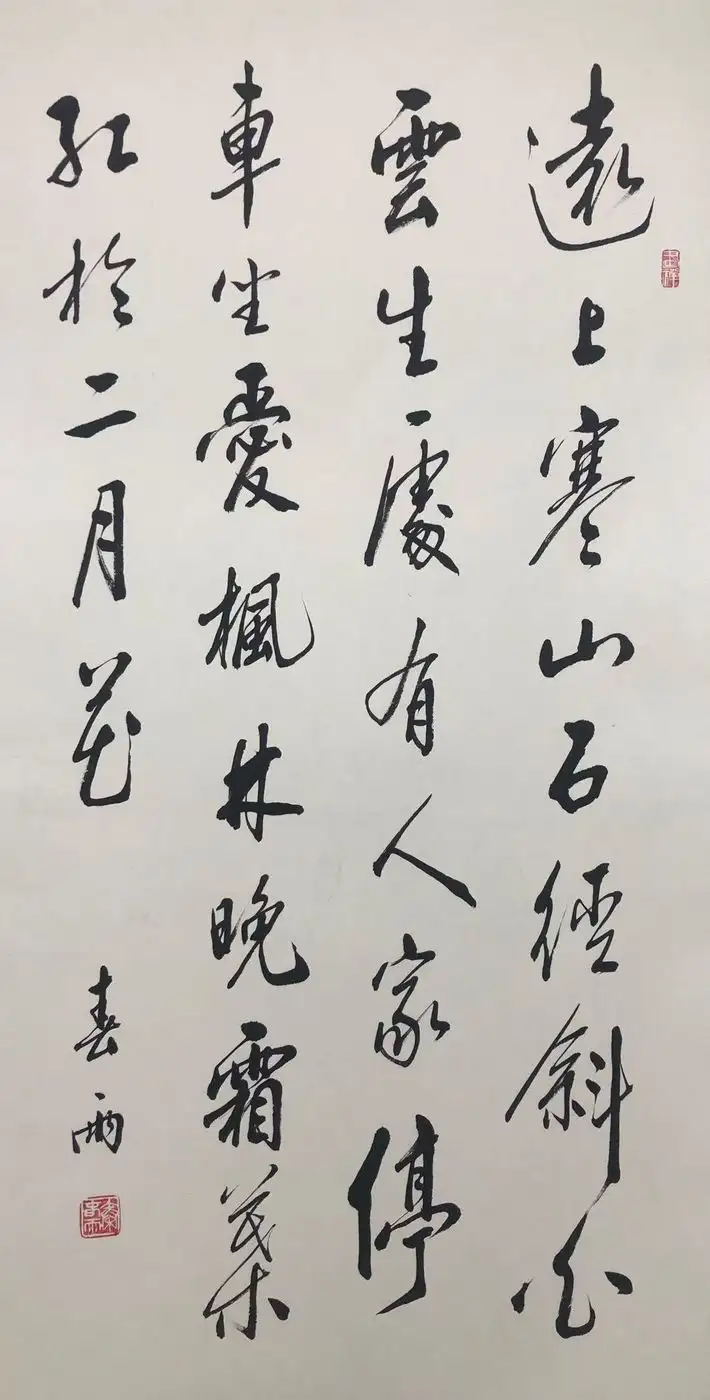 遠上寒山石徑斜白
雲生處有人家停
車坐愛楓林晚霜葉
紅於二月花
春雨